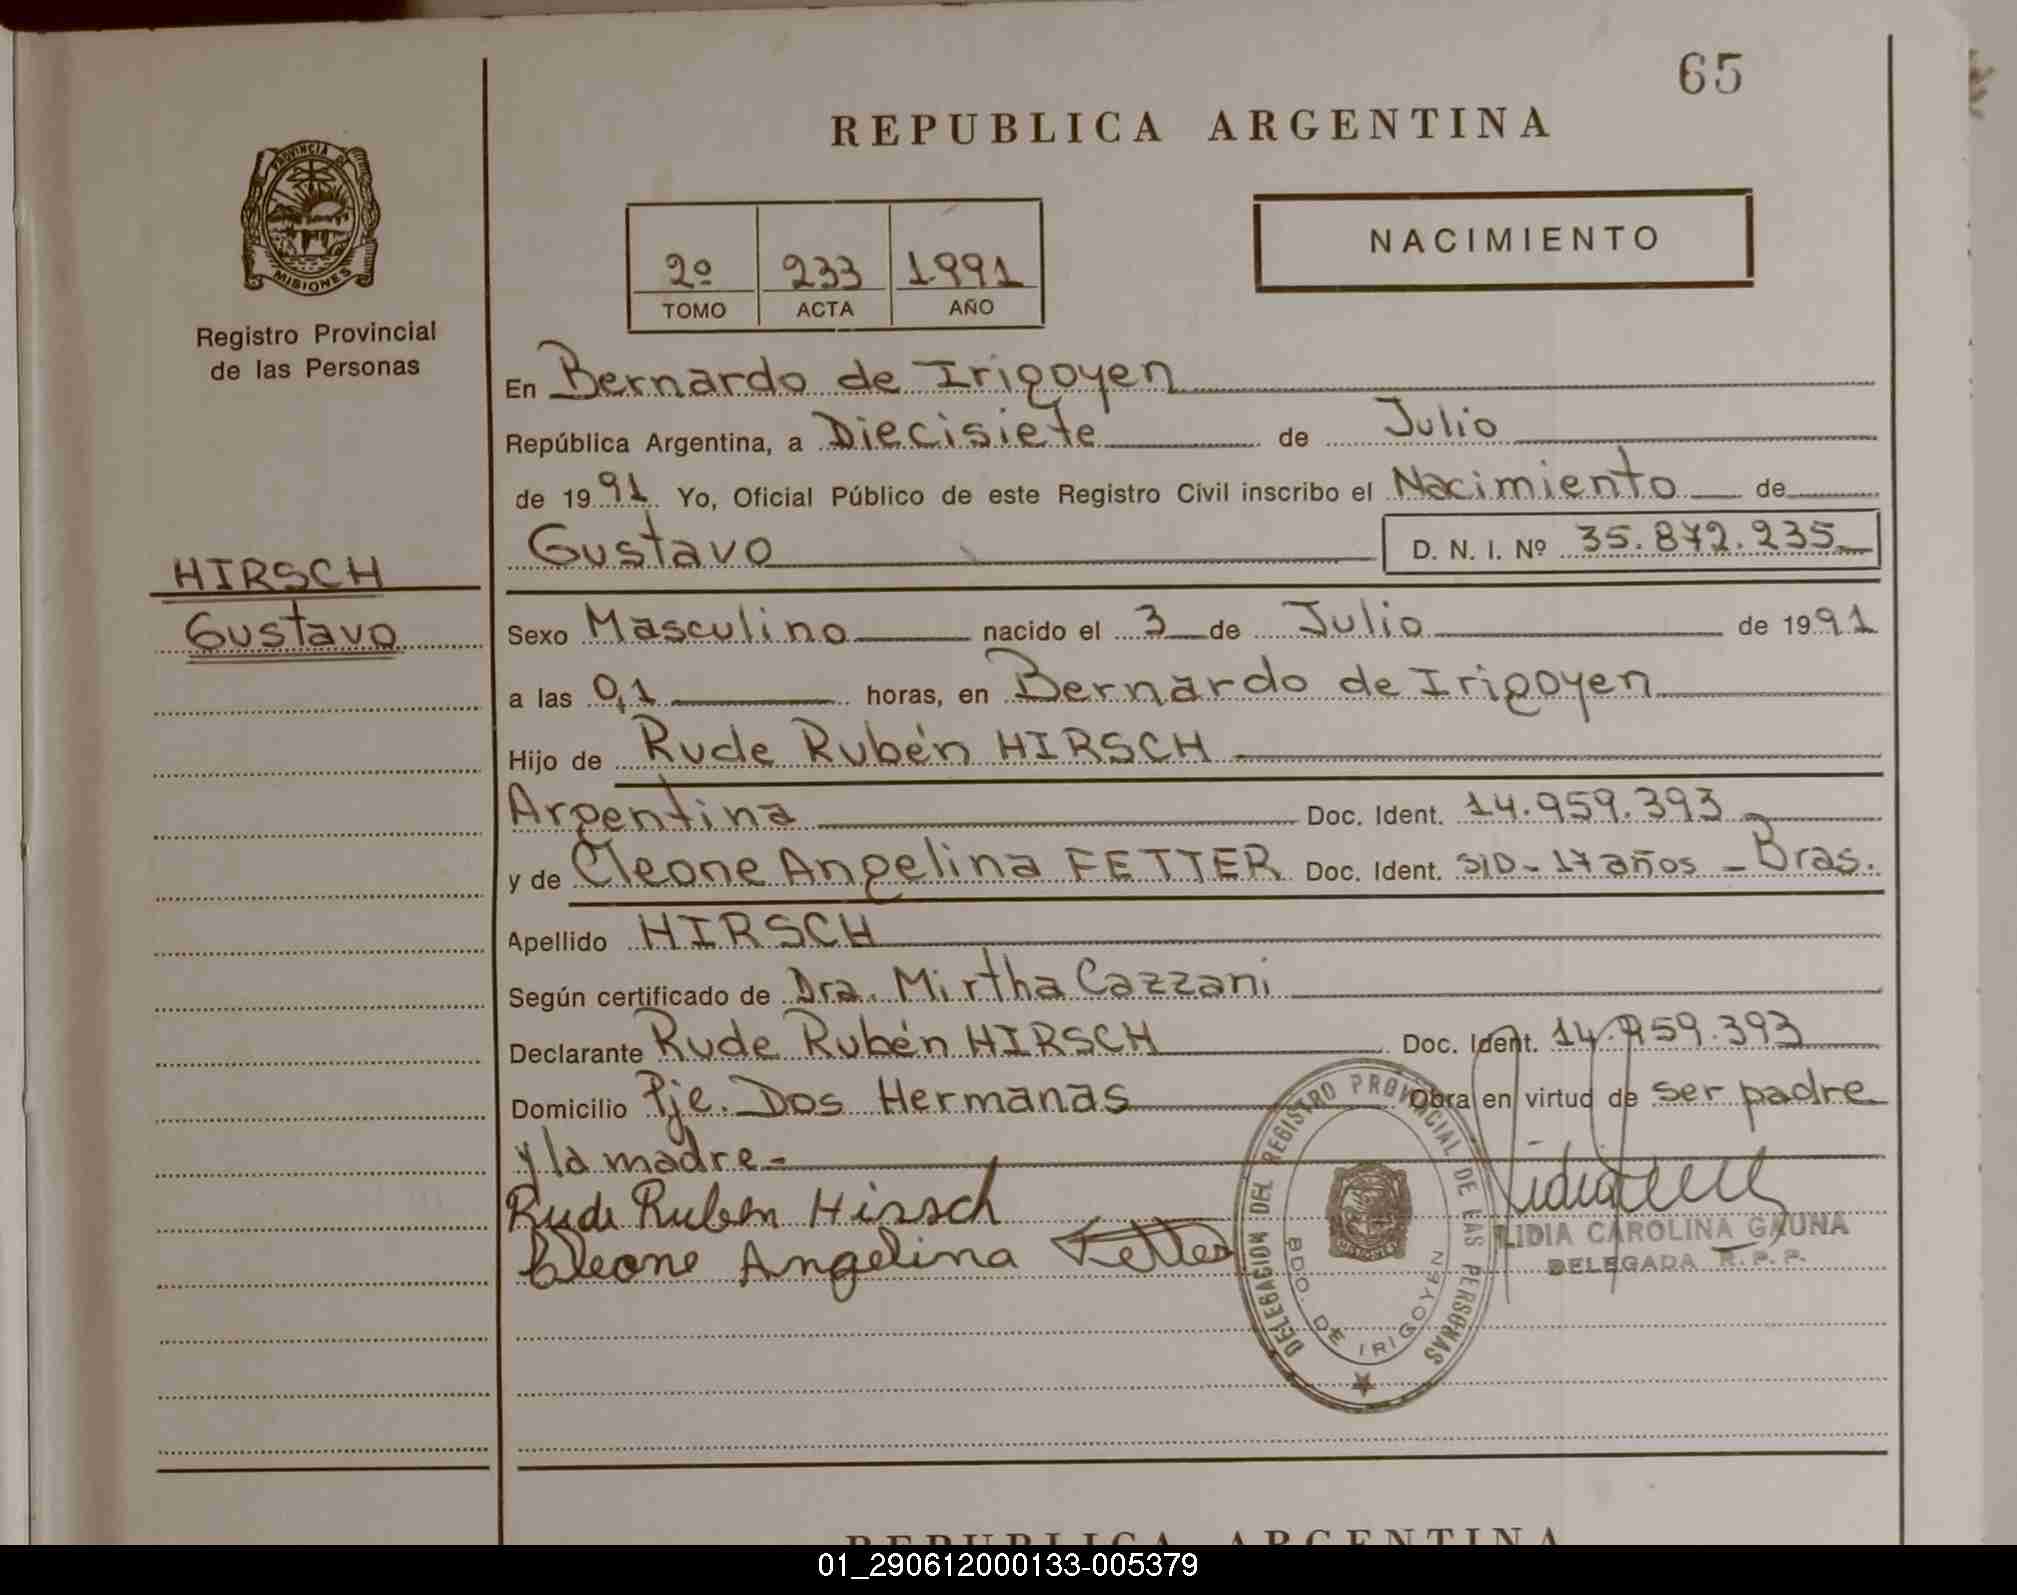 65
REPUBLICA ARGENTINA
PROVINCIA DE
MISIONES
Registro Provincial
de las Personas
NACIMIENTO
2º 233 1991
TOMO ACTA AÑO
En Bernardo de Irigoyen
República Argentina, a Diecisiete de Julio
de 1991 Yo, Oficial Público de este Registro Civil inscribo el Nacimiento de
Gustavo D. N. I. Nº 35.872.235
HIRSCH
Gustavo
Sexo Masculino nacido el 3 de Julio de 1991
a las 0,1 horas, en Bernardo de Irigoyen
Hijo de Rude Rubén HIRSCH
Argentina Doc. Ident. 14.959.393
y de Cleone Angelina FETTER Doc. Ident. S/D - 17 años - Bras.
Apellido HIRSCH
Según certificado de Dra. Mirtha Cazzani
Declarante Rude Rubén HIRSCH Doc. Ident. 14.959.393
Domicilio Pje. Dos Hermanas Obra en virtud de ser padre
y la madre.-
Rude Ruben Hirsch
Cleone Angelina Fetter
DELEGACION DEL REGISTRO PROVINCIAL DE LAS PERSONAS
BDO. DE IRIGOYEN
LIDIA CAROLINA GAUNA
DELEGADA R.P.P.
REPUBLICA ARGENTINA
01_290612000133-005379